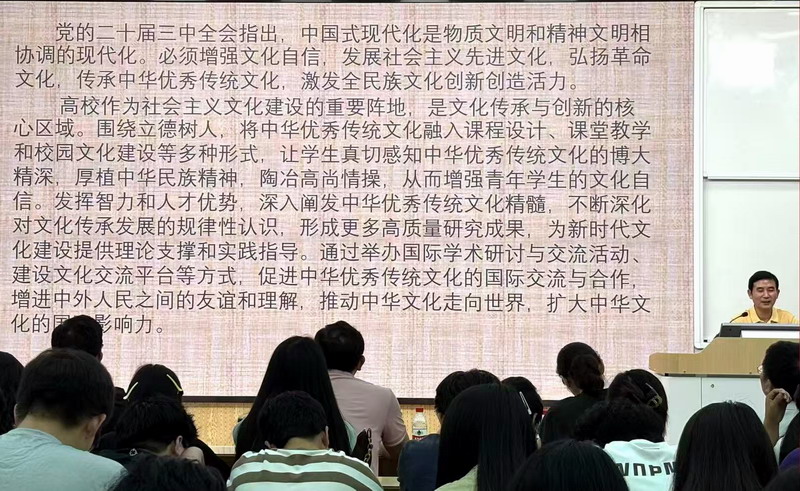 党的二十届三中全会指出，中国式现代化是物质文明和精神文明相
协调的现代化。必须增强文化自信，发展社会主义先进文化，弘扬革命
文化，传承中华优秀传统文化，激发全民族文化创新创造活力。
高校作为社会主义文化建设的重要阵地，是文化传承与创新的核
心区域。围绕立德树人，将中华优秀传统文化融入课程设计、课堂教学
和校园文化建设等多种形式，让学生真切感知中华优秀传统文化的博大
精深，厚植中华民族精神，陶冶高尚情操，从而增强青年学生的文化自
信。发挥智力和人才优势，深入阐发中华优秀传统文化精髓，不断深化
对文化传承发展的规律性认识，形成更多高质量研究成果，为新时代文
化建设提供理论支撑和实践指导。通过举办国际学术研讨与交流活动、
建设文化交流平台等方式，促进中华优秀传统文化的国际交流与合作，
增进中外人民之间的友谊和理解，推动中华文化走向世界，扩大中华文
化的国影响力。